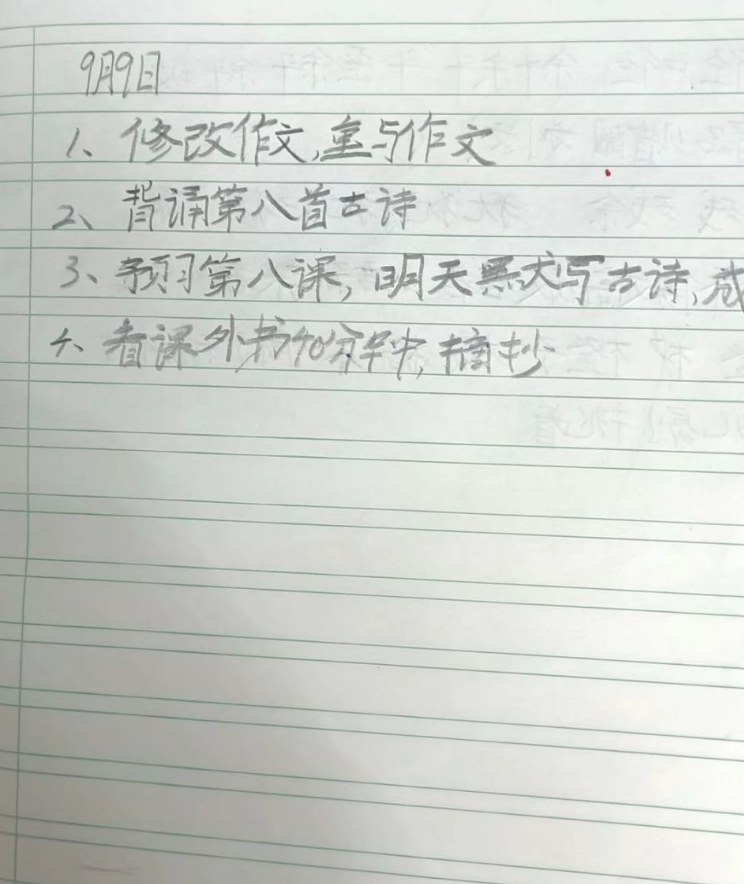 9月9日
1、修改作文,重写作文
2、背诵第八首古诗
3、预习第八课,明天默写古诗,
4、看课外书40分钟,摘抄